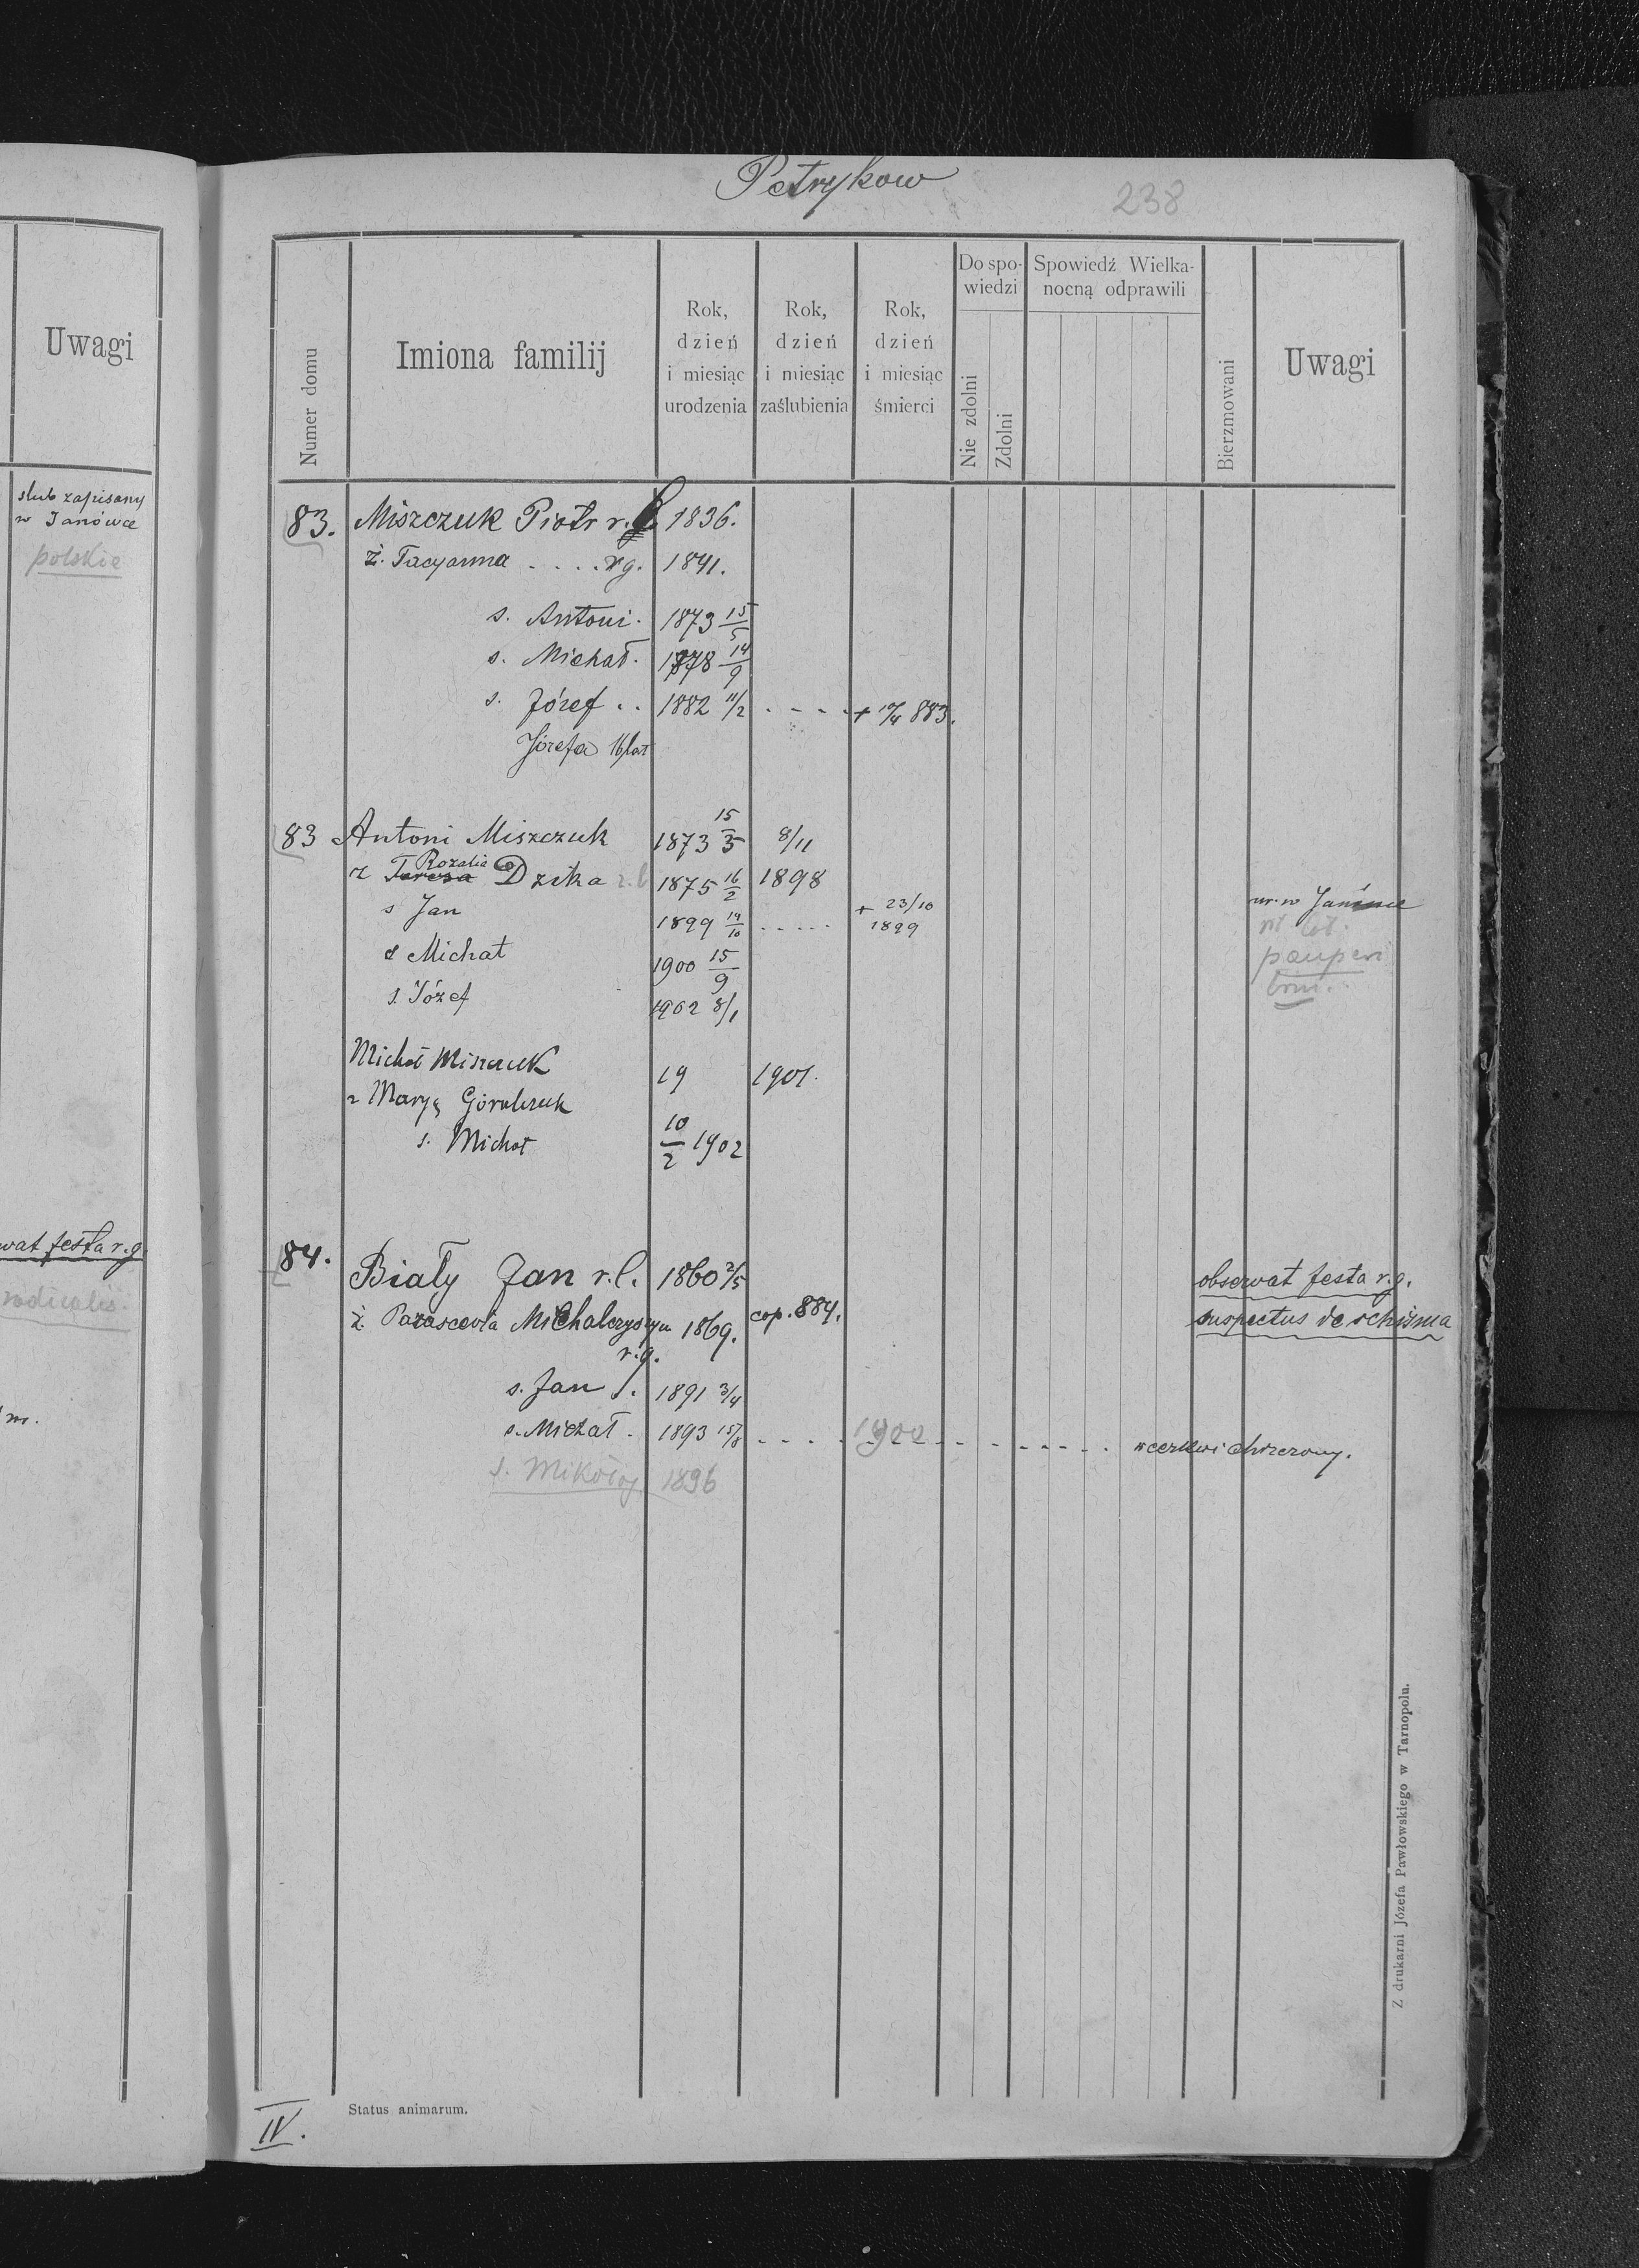 Uwagi
slub zapisany
w Janówce
polskie
wat festa r.g.
radicalis.
m.
Petrykow
238
Numer domu
Imiona familij
Rok, dzień i miesiąc urodzenia
Rok, dzień i miesiąc zaślubienia
Rok, dzień i miesiąc śmierci
Do spo-
wiedzi
Nie zdolni
Zdolni
Spowiedź Wielka-
nocną odprawili
Bierzmowani
Uwagi
83. Miszczuk Piotr r. l. 1836.
ż. Tacyanna . . . . r g. 1841.
s. Antoni. 1873 15/5
s. Michał. 1878 14/9
s. Józef . . 1882 11/2 . . . . + 883.
Józefa 16 lat
83 Antoni Miszczuk 1873 15/3 8/11
Rozalia
ż Teresa Dzika r. l 1875 16/2 1898
s Jan 1899 14/10 . . . . . + 23/10 1899 ur. w
s Michał 1900 15/9 pauperi
s. Józef 1902 8/1
Michał Miszczuk 19 1901.
ż Marya Góralczuk
s. Michał 10/2 1902
84. Biały Jan r. l. 1860 2/5 obserwat festa r. g.
ż. Parascevia Michalczyszyn 1869. cop. 884. suspectus de schisma
r. g.
s. Jan l. 1891 3/4
s. Michał. 1893 15/8 . . . . 1900 . . . . . . . w cerkwi chrzczony.
s. Mikołaj 1896
IV.
Status animarum.
Z drukarni Józefa Pawłowskiego w Tarnopolu.